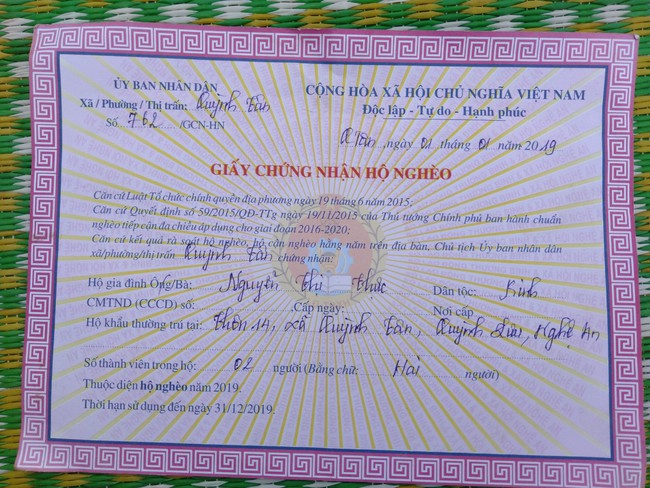 ỦY BAN NHÂN DÂN
Xã / Phường / Thị trấn: Quỳnh Tân
Số 762 /GCN-HN
CỘNG HÒA XÃ HỘI CHỦ NGHĨA VIỆT NAM
Độc lập - Tự do - Hạnh phúc
Q Tân, ngày 01 tháng 01 năm 2019
GIẤY CHỨNG NHẬN HỘ NGHÈO
Căn cứ Luật Tổ chức chính quyền địa phương ngày 19 tháng 6 năm 2015;
Căn cứ Quyết định số 59/2015/QĐ-TTg ngày 19/11/2015 của Thủ tướng Chính phủ ban hành chuẩn
nghèo tiếp cận đa chiều áp dụng cho giai đoạn 2016-2020;
Căn cứ kết quả rà soát hộ nghèo, hộ cận nghèo hằng năm trên địa bàn, Chủ tịch Ủy ban nhân dân
xã/phường/thị trấn Quỳnh Tân chứng nhận:
Hộ gia đình Ông/Bà: Nguyễn Thị Thức Dân tộc: Kinh
CMTND (CCCD) số: Cấp ngày: Nơi cấp
Hộ khẩu thường trú tại: Thôn 14, xã Quỳnh Tân, Quỳnh Lưu, Nghệ An
Số thành viên trong hộ: 02 người (Bằng chữ: Hai người)
Thuộc diện hộ nghèo năm 2019.
Thời hạn sử dụng đến ngày 31/12/2019.